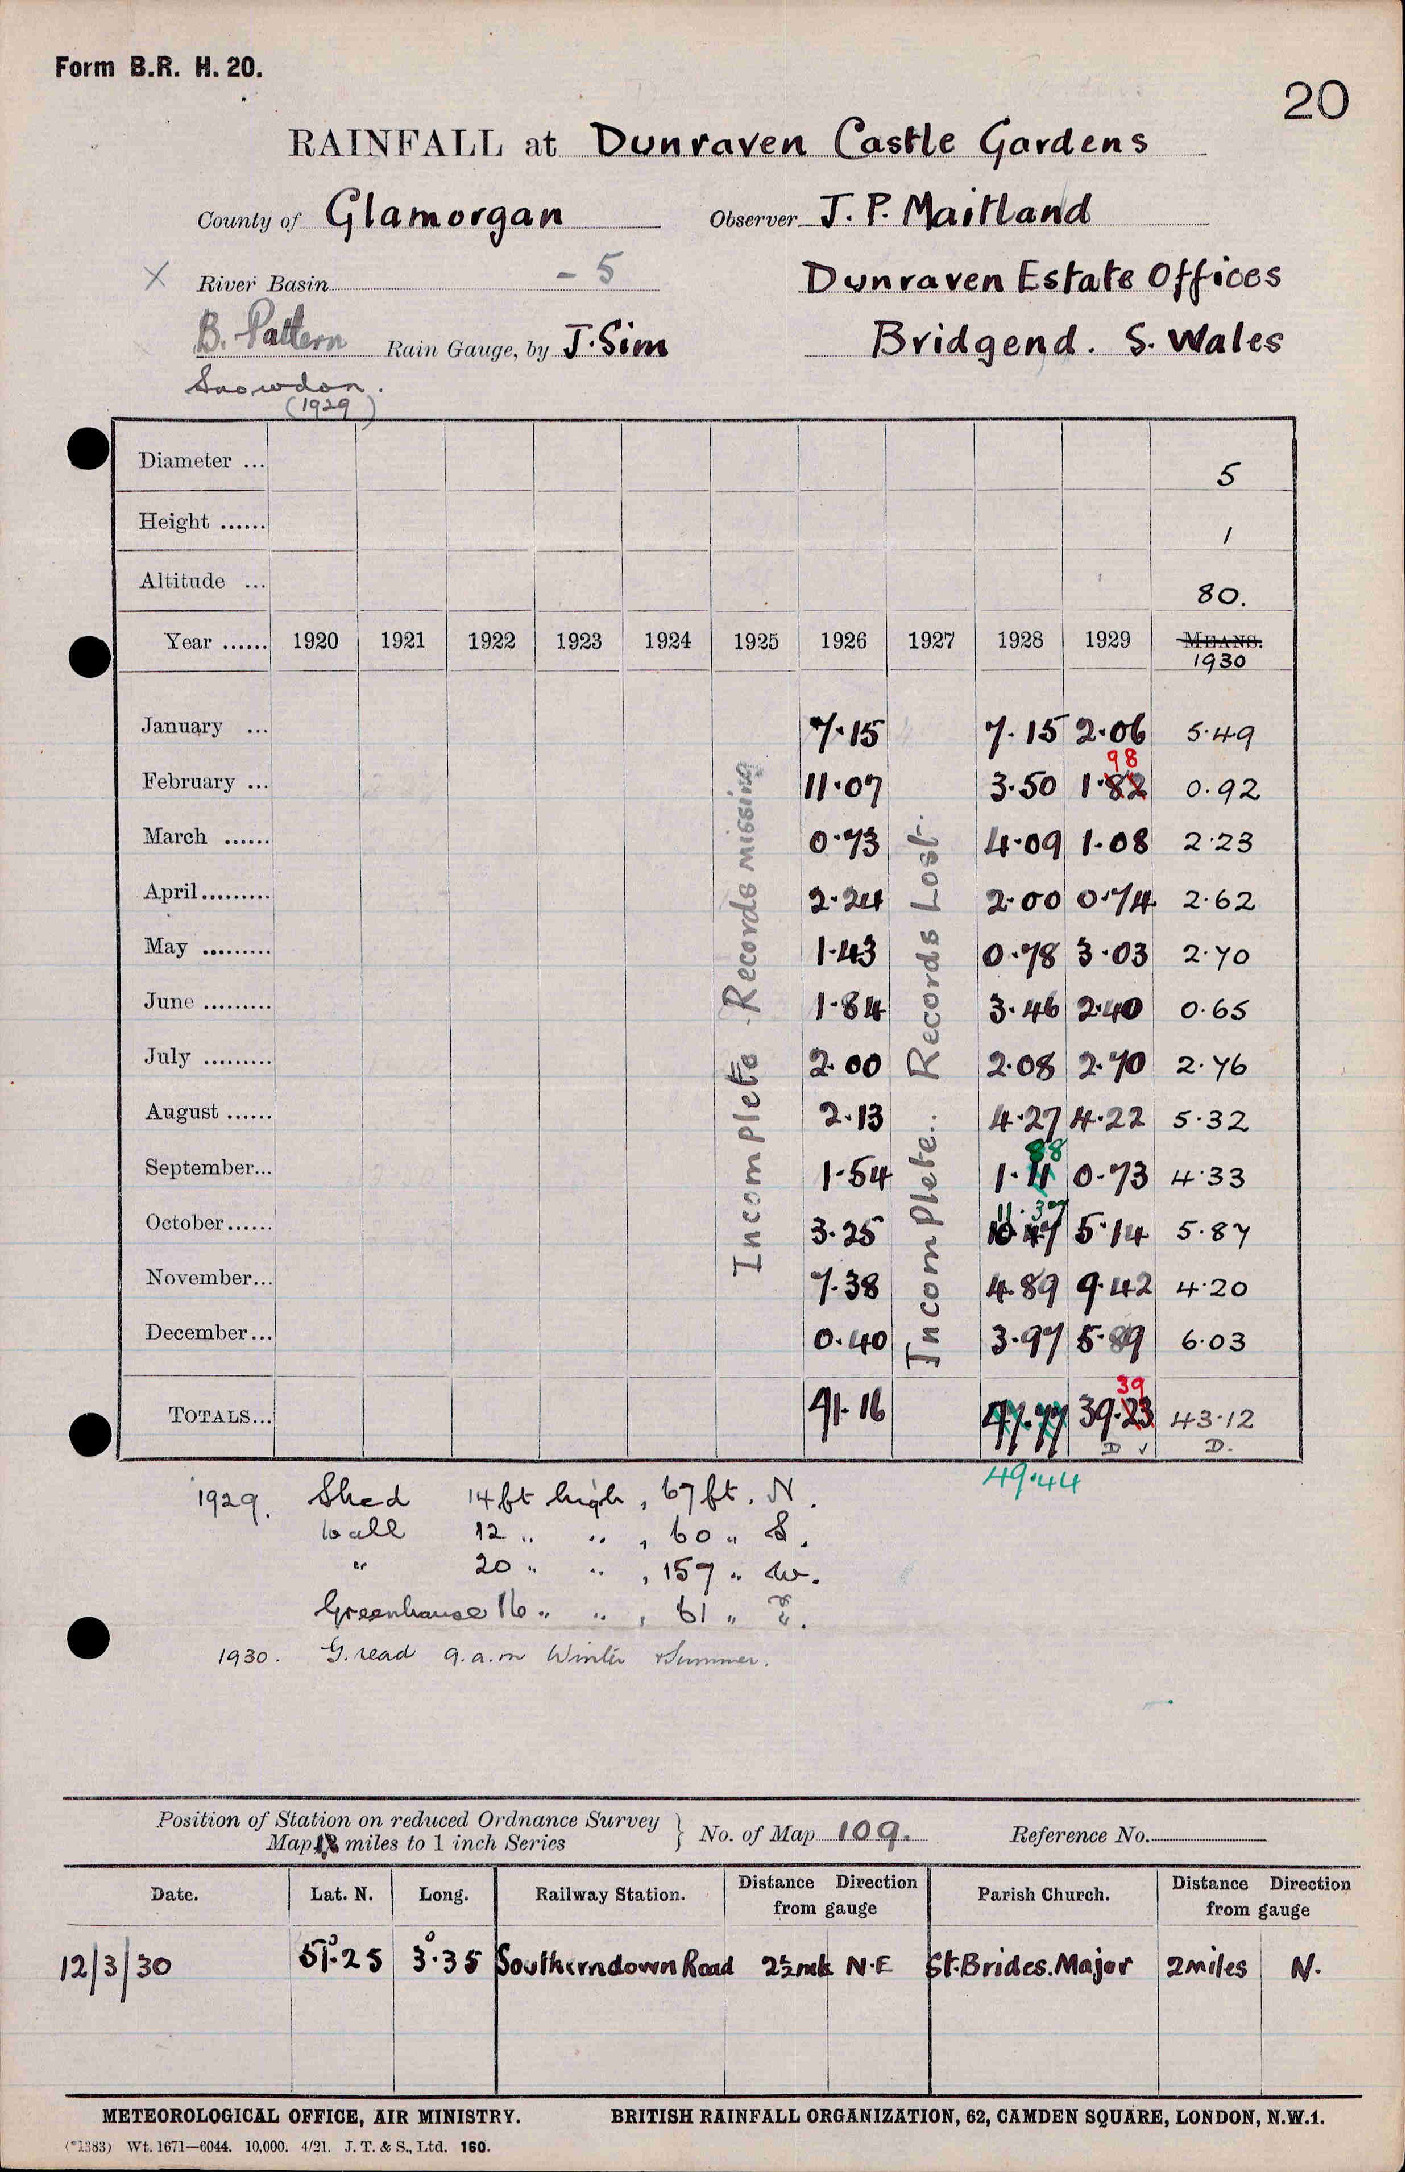 Form B.R. H. 20.
20
RAINFALL at Dunraven Castle Gardens
County of Glamorgan Observer J. P. Maitland
River Basin - 5 Dunraven Estate Offices
B. Pattern Rain Gauge, by J. Sim Bridgend. S. Wales
Snowdon.
(1929)
Diameter ... 5
Height ...... 1
Altitude ... 80.
Year ...... 1920 1921 1922 1923 1924 1925 1926 1927 1928 1929 MEANS. 1930
Incomplete Records missing
Incomplete.. Records Lost.
January ... 7.15 7.15 2.06 5.49
98
February ... 11.07 3.50 1.82 0.92
March ...... 0.73 4.09 1.08 2.23
April......... 2.24 2.00 0.74 2.62
May ......... 1.43 0.78 3.03 2.70
June ......... 1.84 3.46 2.40 0.65
July ......... 2.00 2.08 2.70 2.76
August ...... 2.13 4.27 4.22 5.32
88
September... 1.54 1.11 0.73 4.33
11.37
October...... 3.25 10.47 5.14 5.87
November... 7.38 4.89 9.42 4.20
December... 0.40 3.97 5.89 6.03
39
TOTALS... 41.16 47.77 39.23 43.12
D ✓ D.
49.44
1929. Shed 14 ft high, 67 ft. N.
Wall 12 " " , 60 " S.
" 20 " " , 157 " W.
Greenhouse 16 " " , 61 " E.
1930. G. read 9 a.m Winter & Summer.
Position of Station on reduced Ordnance Survey } No. of Map 109. Reference No.
Map miles to 1 inch Series
Date. Lat. N. Long. Railway Station. Distance Direction from gauge Parish Church. Distance Direction from gauge
12/3/30 51°.25 3°.35 Southerndown Road 2½ mls N.E St. Brides. Major 2 miles N.
METEOROLOGICAL OFFICE, AIR MINISTRY. BRITISH RAINFALL ORGANIZATION, 62, CAMDEN SQUARE, LONDON, N.W.1.
(*1383) Wt. 1671—6044. 10,000. 4/21. J. T. & S., Ltd. 160.